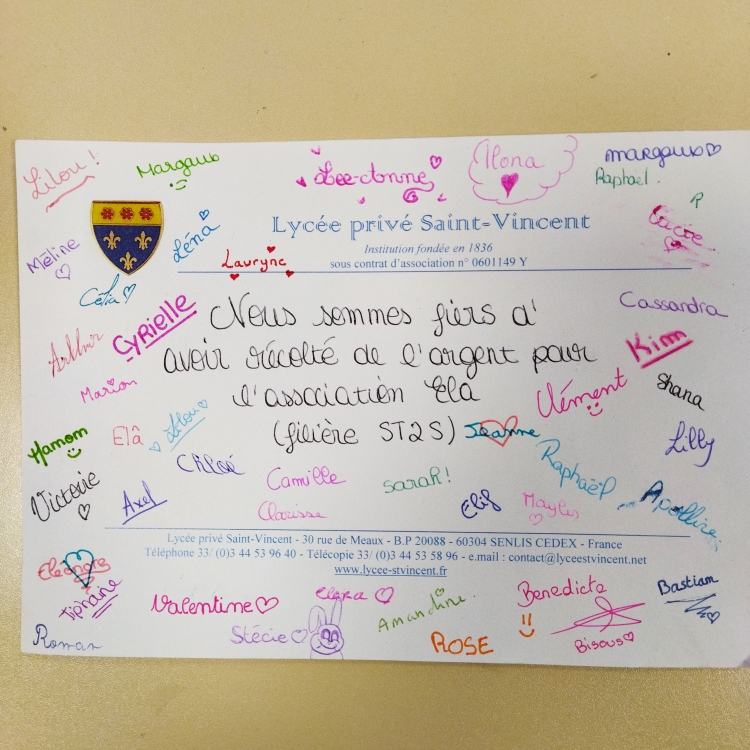 Lilou !
Margaux
Lee-Anne
Ilona
margaux
Raphaël.
R
Méline
Léna
Lycée privé Saint-Vincent
Institution fondée en 1836
sous contrat d'association n° 0601149 Y
Lauryne
Célia
Cyrielle
Nous sommes fiers d'
avoir récolté de l'argent pour
l'association Ela
(filière ST2S)
Cassandra
Kim
Arthur
Marion
Clément
Shana
Hamom
Elâ
Lilou
Jeanne
Lilly
Chloé
Raphaël
Victorie
Axel
Camille
Sarah!
Elif
Maylis
Apolline
Clarisse
Lycée privé Saint-Vincent - 30 rue de Meaux - B.P 20088 - 60304 SENLIS CEDEX - France
Téléphone 33/ (0)3 44 53 96 40 - Télécopie 33/ (0)3 44 53 58 96 - e.mail : contact@lyceestvincent.net
www.lycee-stvincent.fr
Eléonore
Tiphaine
Valentine
Clara
Benedicte
Bastian
Roman
Stécie
Amandine
ROSE
Bisous